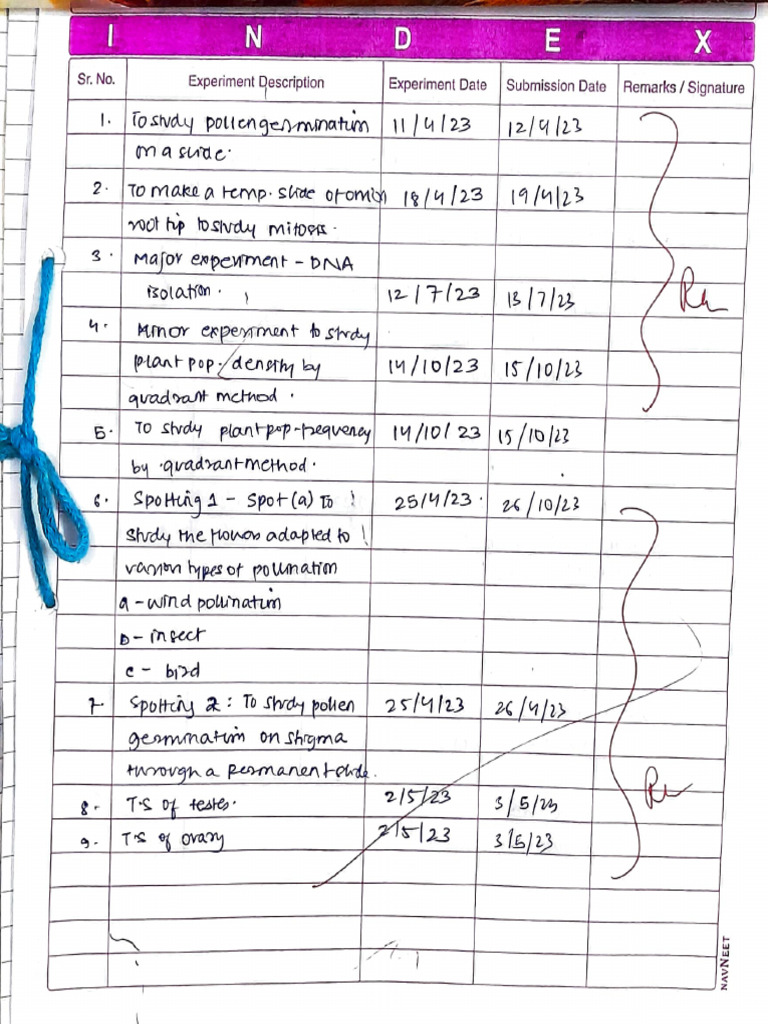 I N D E X
Sr. No. Experiment Description Experiment Date Submission Date Remarks / Signature
1. To study pollen germination 11/4/23 12/4/23
on a slide.
2. To make a temp. slide of onion 18/4/23 19/4/23
root tip to study mitosis.
3. Major experiment - DNA
isolation. 12/7/23 13/7/23
4. Minor experiment to study
plant pop. density by 14/10/23 15/10/23
quadrant method.
5. To study plant pop-frequency 14/10/23 15/10/23
by quadrant method.
6. Spotting 1 - Spot (a) To 25/4/23 26/10/23
study the flowers adapted to
various types of pollination
a - wind pollination
b - insect
c - bird
7. Spotting 2: To study pollen 25/4/23 26/4/23
germination on stigma
through a permanent slide.
8. T.S of testes. 2/5/23 3/5/23
9. T.S of ovary 2/5/23 3/5/23
NAVNEET